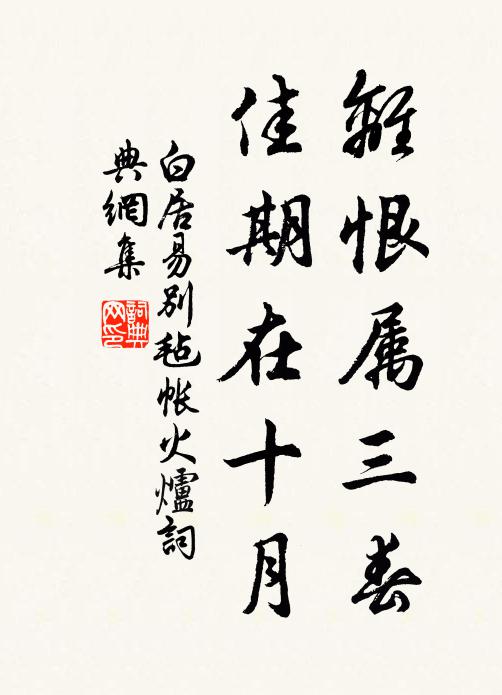 離恨属三春
佳期在十月
白居易別毡帐火爐詞
典網集
詞典
网印